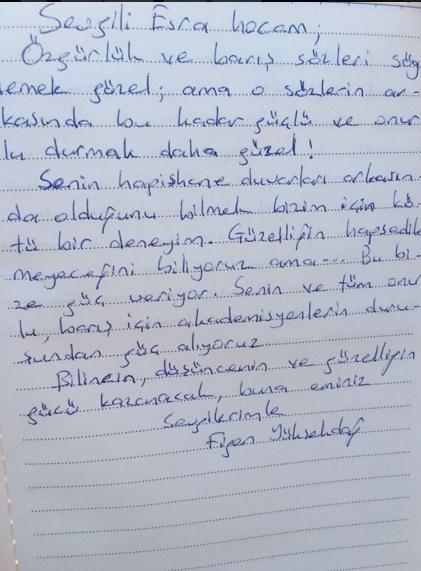 Sevgili Esra hocam;
Özgürlük ve barış sözleri söy
lemek güzel; ama o sözlerin ar-
kasında bu kadar güçlü ve onur
lu durmak daha güzel!
Senin hapishane duvarları arkasın-
da olduğunu bilmek bizim için kö-
tü bir deneyim. Güzelliğin hapsedile
meyeceğini biliyoruz ama.... Bu bi-
ze güç veriyor. Senin ve tüm onur
lu, barış için akademisyenlerin duru-
şundan güç alıyoruz
Bilincin, düşüncenin ve güzelliğin
gücü kazanacak, buna eminiz
Sevgilerimle
Figen Yüksekdağ